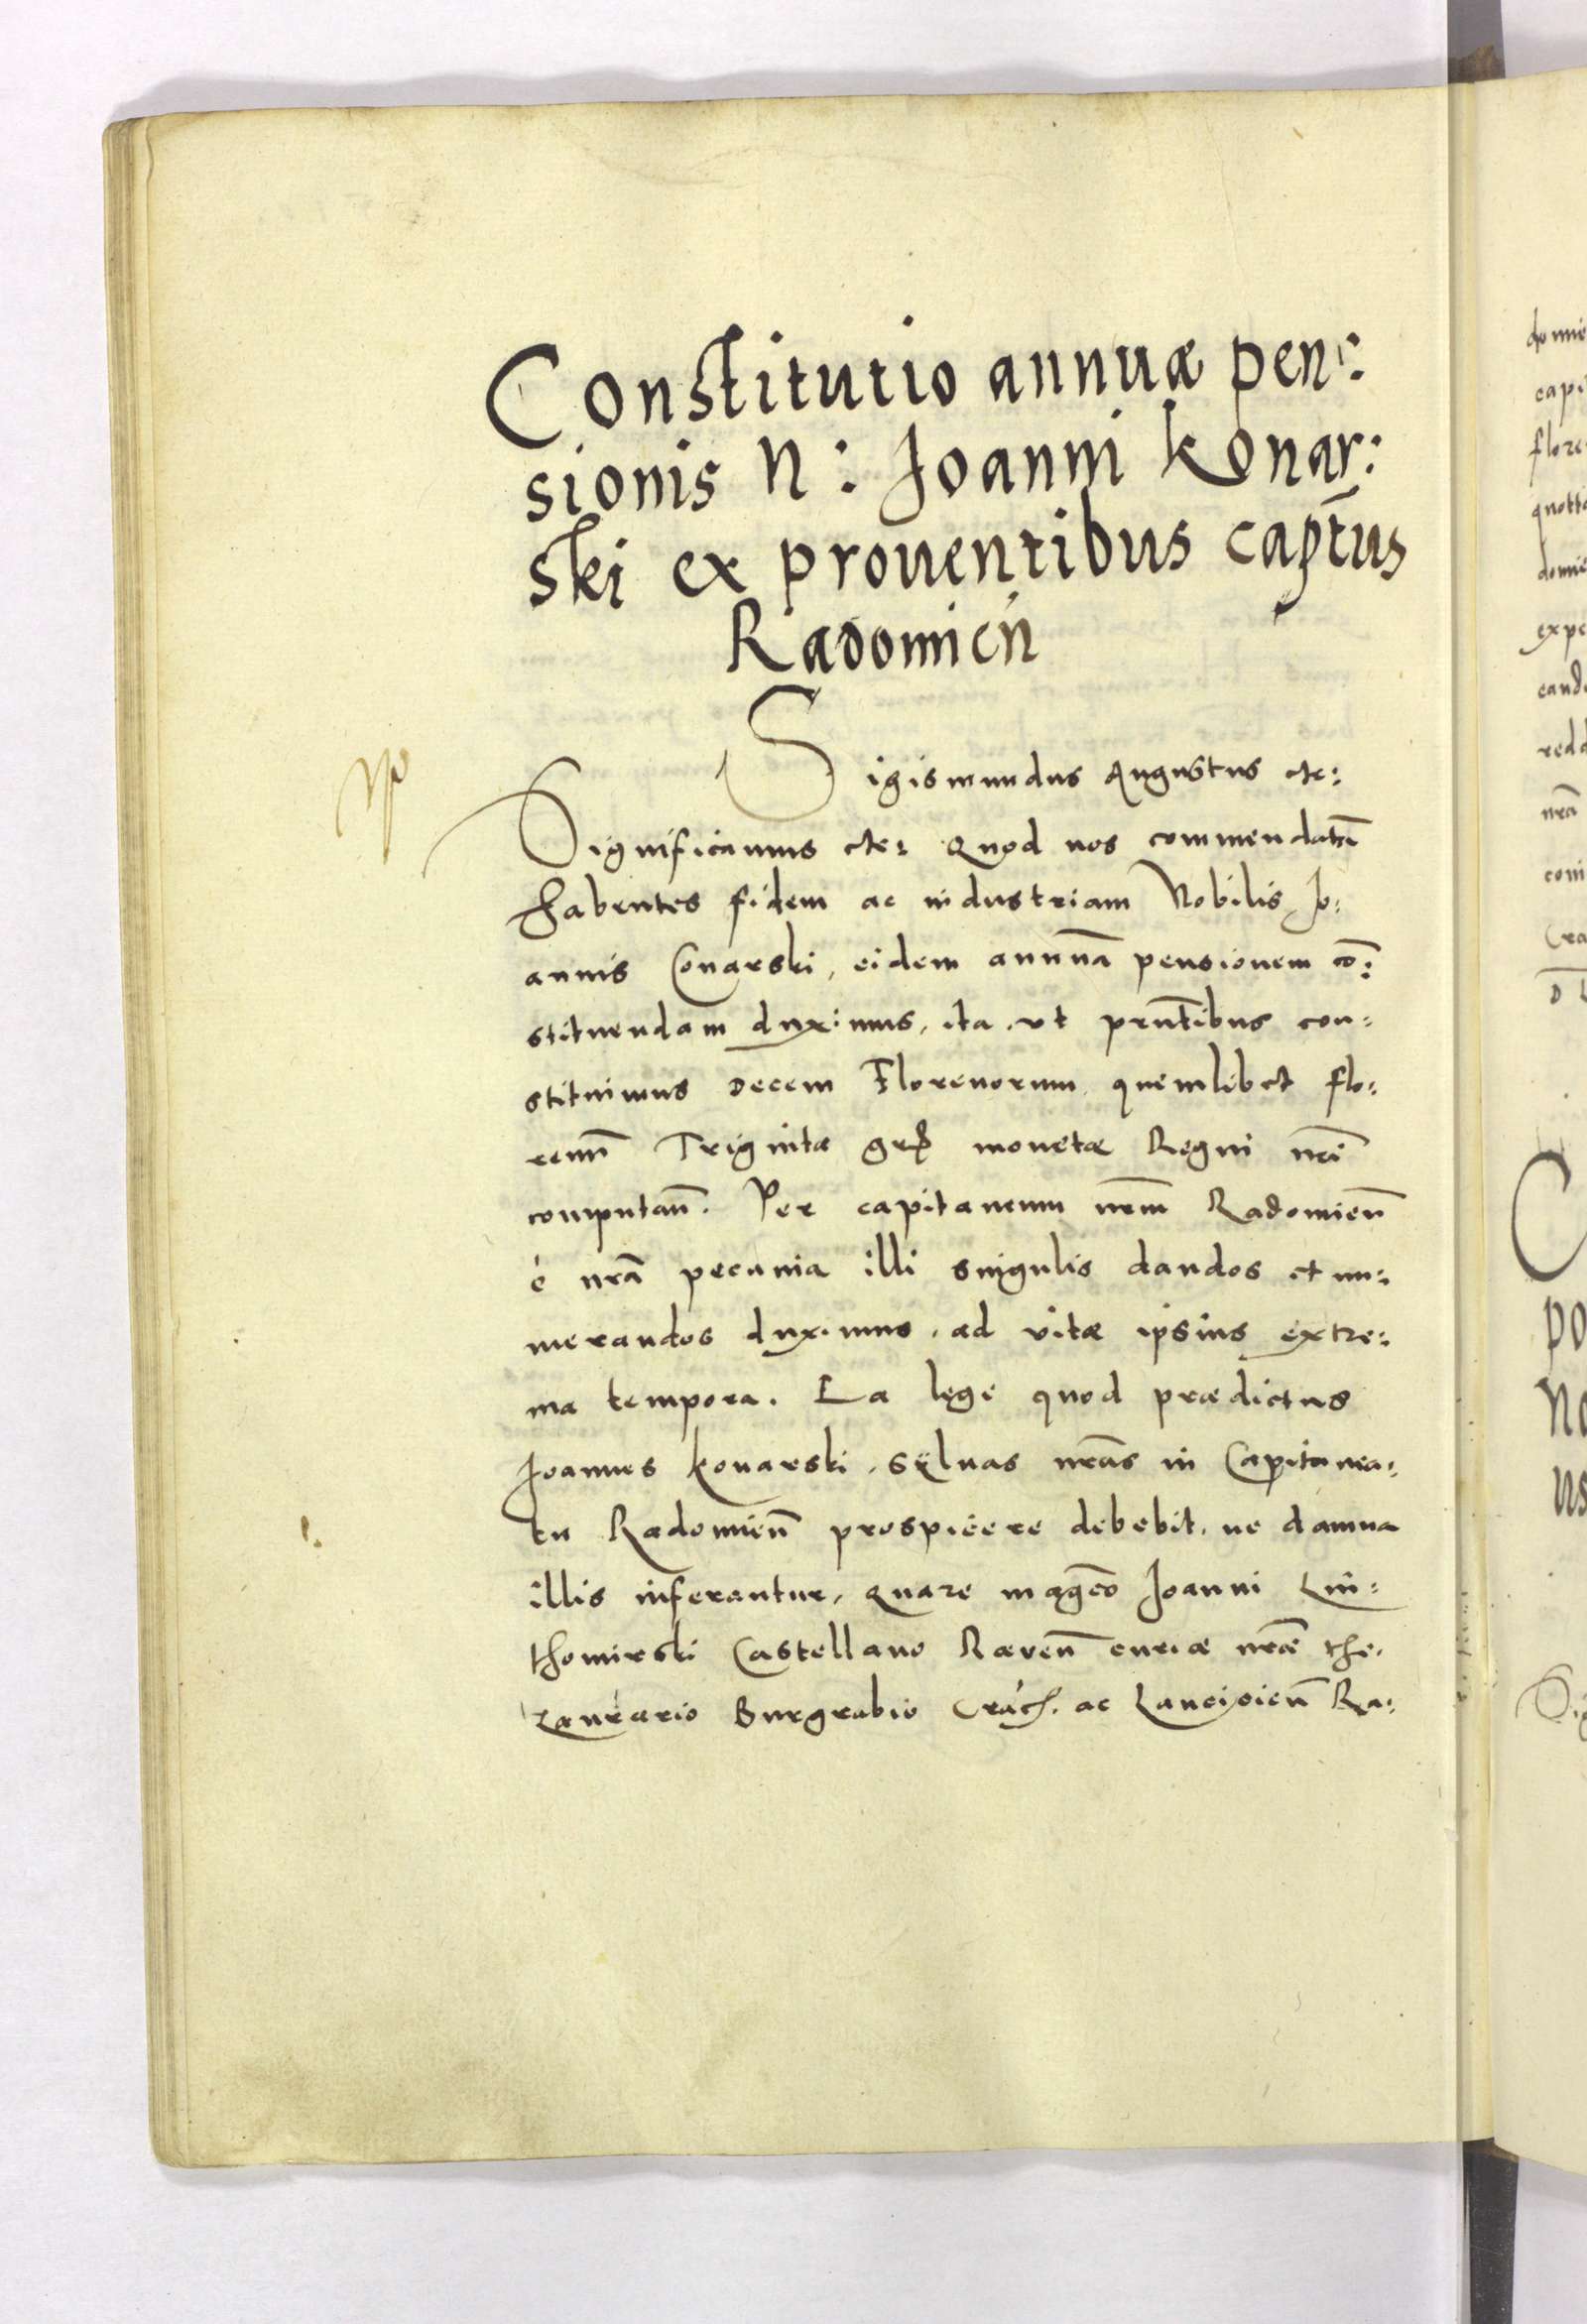 Constitutio annuæ pen:
sionis N: Joanni Konar:
ski ex prouentibus captūs
Radomień
Sigismundus Augustus etc:
Significamus etc: Quod nos commendatā
habentes fidem ac industriam Nobilis Jo:
annis Conarski, eidem annuā pensionem cō:
stituendam duximus, ita vt prntībus con:
stituimus Decem Florenorum quemlibet flo:
renū Triginta gr monetæ Regni nrī
computañ. Per capitaneum nrm̄ Radomieñ
é nrā pecunia illi singulis dandos et nu:
merandos duximus, ad vitæ ipsius extre:
ma tempora. Ea lege quod prædictus
Joannes Konarski, sÿluas nrās in Capitanea:
tu Radomieñ prospicere debebit, ne damna
illis inferantur, Quare mag͞co Joanni Lu:
thomirski Castellano Raveñ curiæ nrǣ the:
zaurario Burgrabio Crach. ac Lancicieñ Ra:
domie
capi
flore
quott
domie
expe
eand
redd
nrā
coni
Cra
D
C
po
No
us
Sig